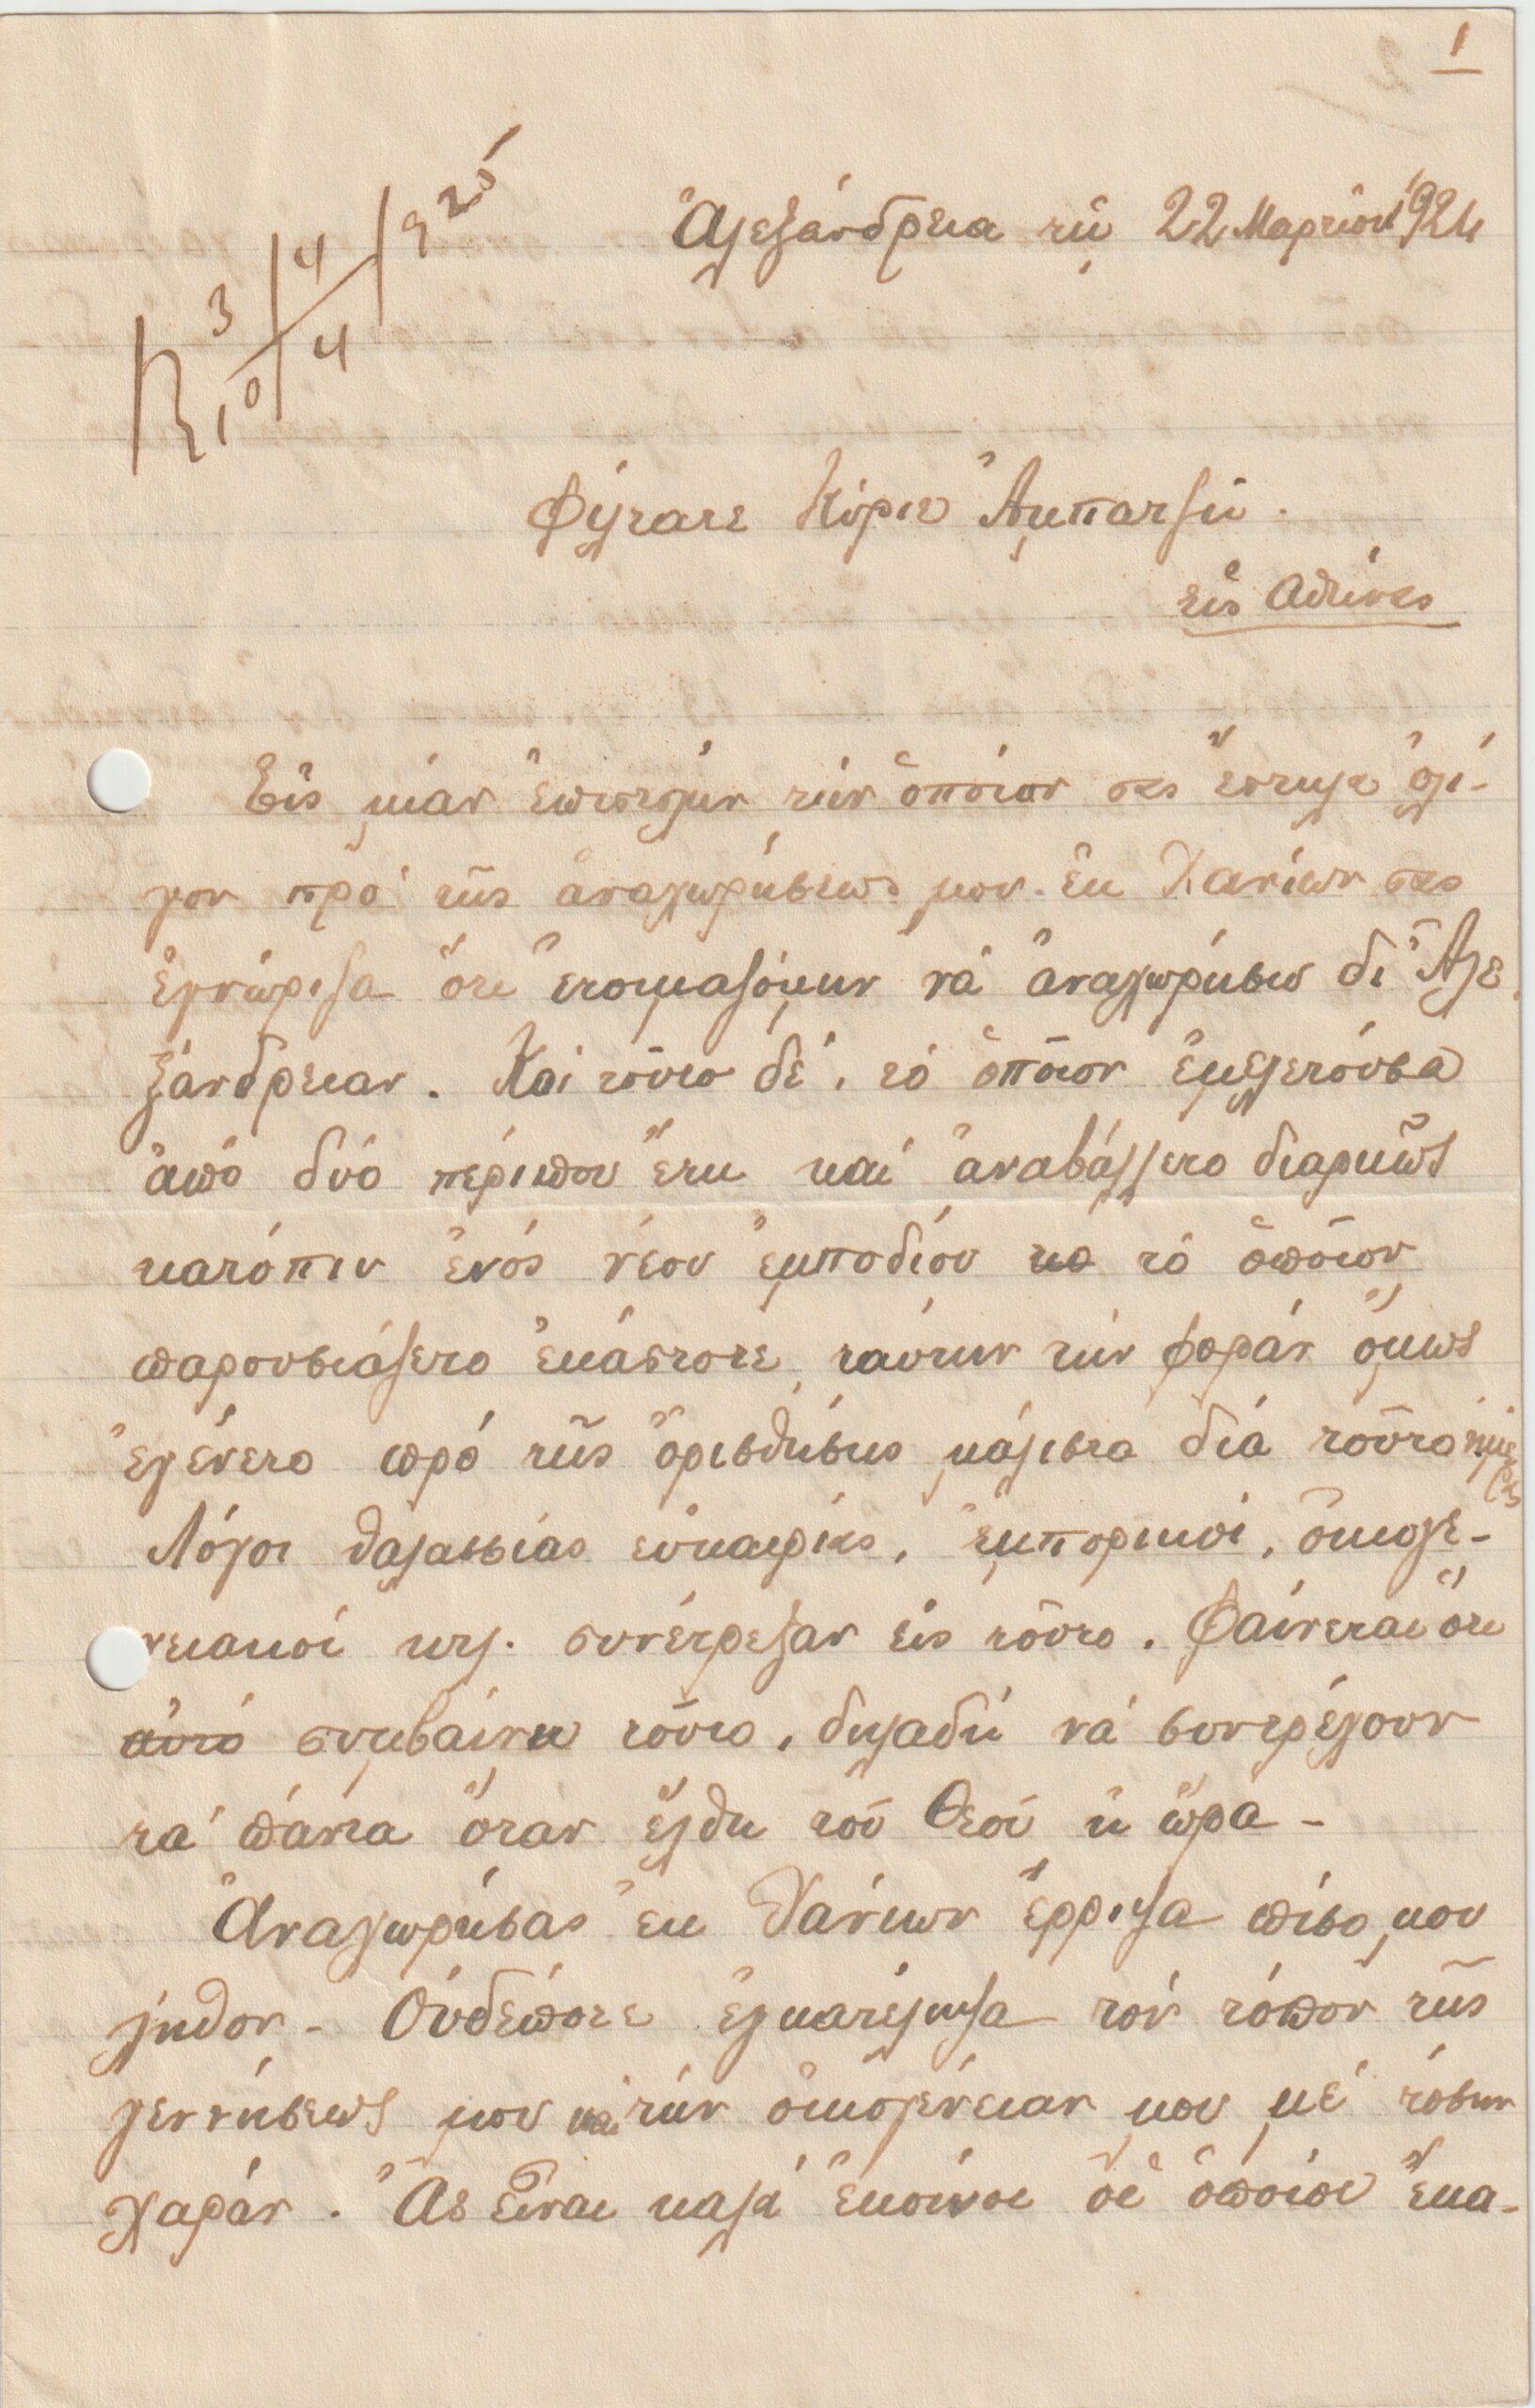 1
Ἀλεξάνδρεια τῇ 22 Μαρτίου 1924
3/4/925
10/4
Φίλτατε Κύριε Ἀμπατζῆ.
εἰς Ἀθήνας
Εἰς μίαν ἐπιστολήν τήν ὁποίαν σας ἔστειλα ὀλί-
γον πρό τῆς ἀναχωρήσεως μου ἐκ Χανίων σας
ἐγνώρισα ὅτι ἑτοιμαζόμην νά ἀναχωρήσω δι' Ἀλε
ξάνδρειαν. Καί τοῦτο δέ, τό ὁποῖον ἐμελετοῦσα
ἀπό δύο περίπου ἔτη καί ἀνεβάλλετο διαρκῶς
κατόπιν ἑνός νέου ἐμποδίου το τό ὁποῖον
παρουσιάζετο ἑκάστοτε, ταύτην τήν φοράν ὅμως
ἐγένετο πρό τῆς ὁρισθήσης μάλιστα διά τοῦτο ἡμέρας
Λόγοι θαλασσίας εὐκαιρίας, ἐμπορικοί, οἰκογε-
νειακοί κτλ. συνέτρεξαν εἰς τοῦτο. Φαίνεται ὅτι
αὐτό συμβαίνει τοῦτο, δηλαδή νά συντρέχουν
τά πάντα ὅταν ἔλθη τοῦ Θεοῦ ἡ ὥρα -
Ἀναχωρήσας ἐκ Χανίων ἔρριψα πίσω μου
λίθον - Οὐδέποτε ἐγκατέλειψα τόν τόπον τῆς
γεννήσεως μου καί τήν οἰκογένειαν μου μέ τόσην
χαράν. Ἄς εἶναι καλά ἐκεῖνοι οἱ ὁποῖοι ἔκα-